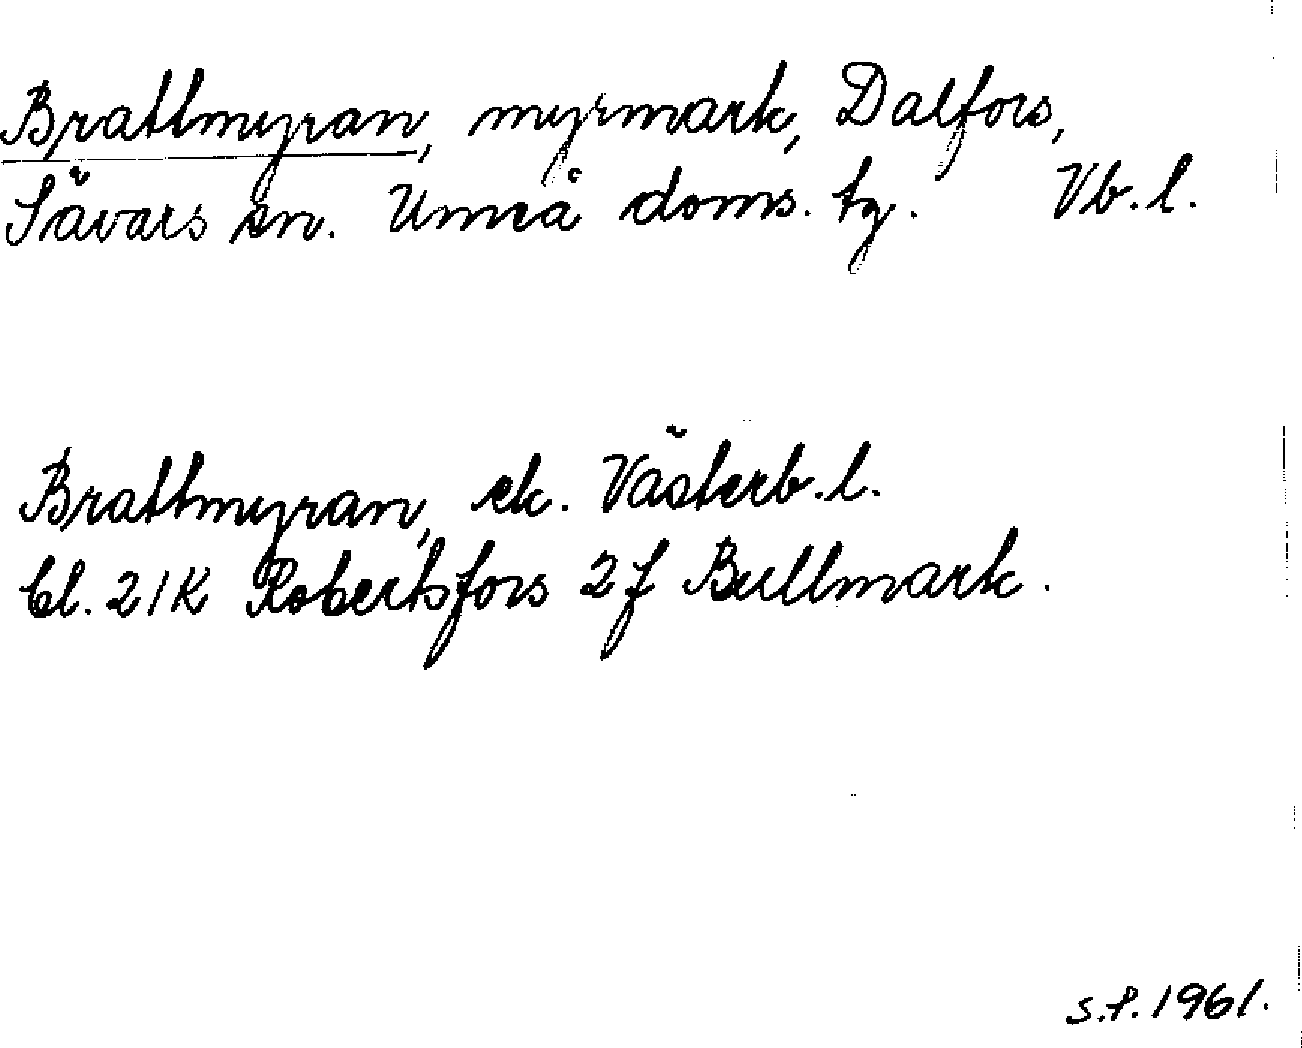 Brattmyran, myrmark, Dalfors,
Sävars sn. Umeå doms. tg. Vb.l.
Brattmyran, ek. Västerb.l.
bl. 21K Robertsfors 2f Bullmark.
S.f. 1961.